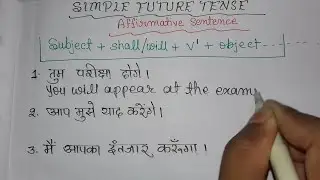 SIMPLE FUTURE TENSE
Affirmative Sentence
Subject + shall/will + V¹ + object...
1. तुम परीक्षा दोगे।
You will appear at the exam
2. आप मुझे याद करेंगे।
3. मैं आपका इंतजार करूँगा।